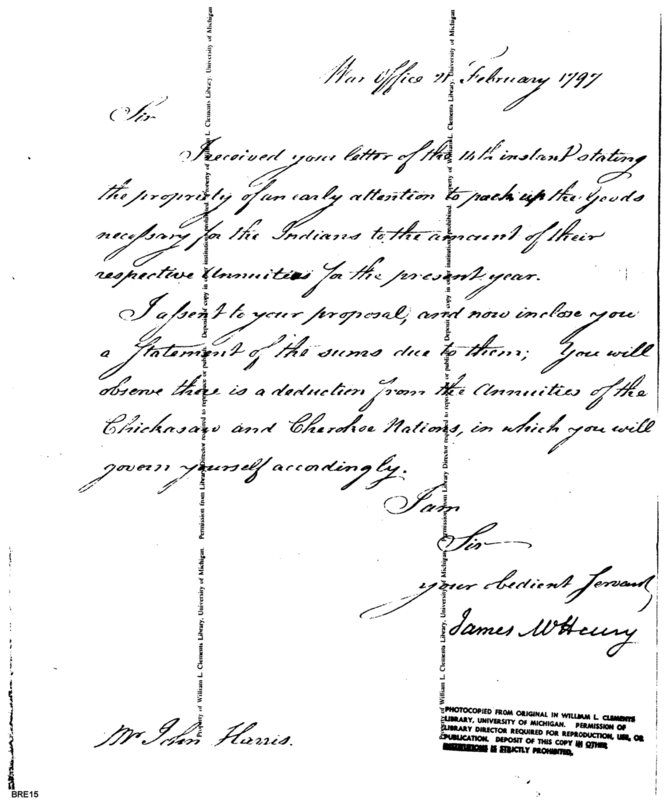 War Office 21 February 1797
Sir
I received your letter of the 14th instant stating
the propriety of an early attention to pack up the Goods
necessary for the Indians to the amount of their
respective Annuities for the present year.
I assent to your proposal, and now inclose you
a Statement of the sums due to them; You will
observe there is a deduction from the Annuities of the
Chickasaw and Cherokee Nations, in which you will
govern yourself accordingly.
I am
Sir
your obedient Servant
James McHenry
Mr John Harris.
Property of William L. Clements Library, University of Michigan. Permission from Library Director required to reproduce or publish. Deposit of copy in other institutions prohibited.
PHOTOCOPIED FROM ORIGINAL IN WILLIAM L. CLEMENTS
LIBRARY, UNIVERSITY OF MICHIGAN. PERMISSION OF
LIBRARY DIRECTOR REQUIRED FOR REPRODUCTION, USE, OR
PUBLICATION. DEPOSIT OF THIS COPY IN OTHER
INSTITUTIONS IS STRICTLY PROHIBITED.
BRE15